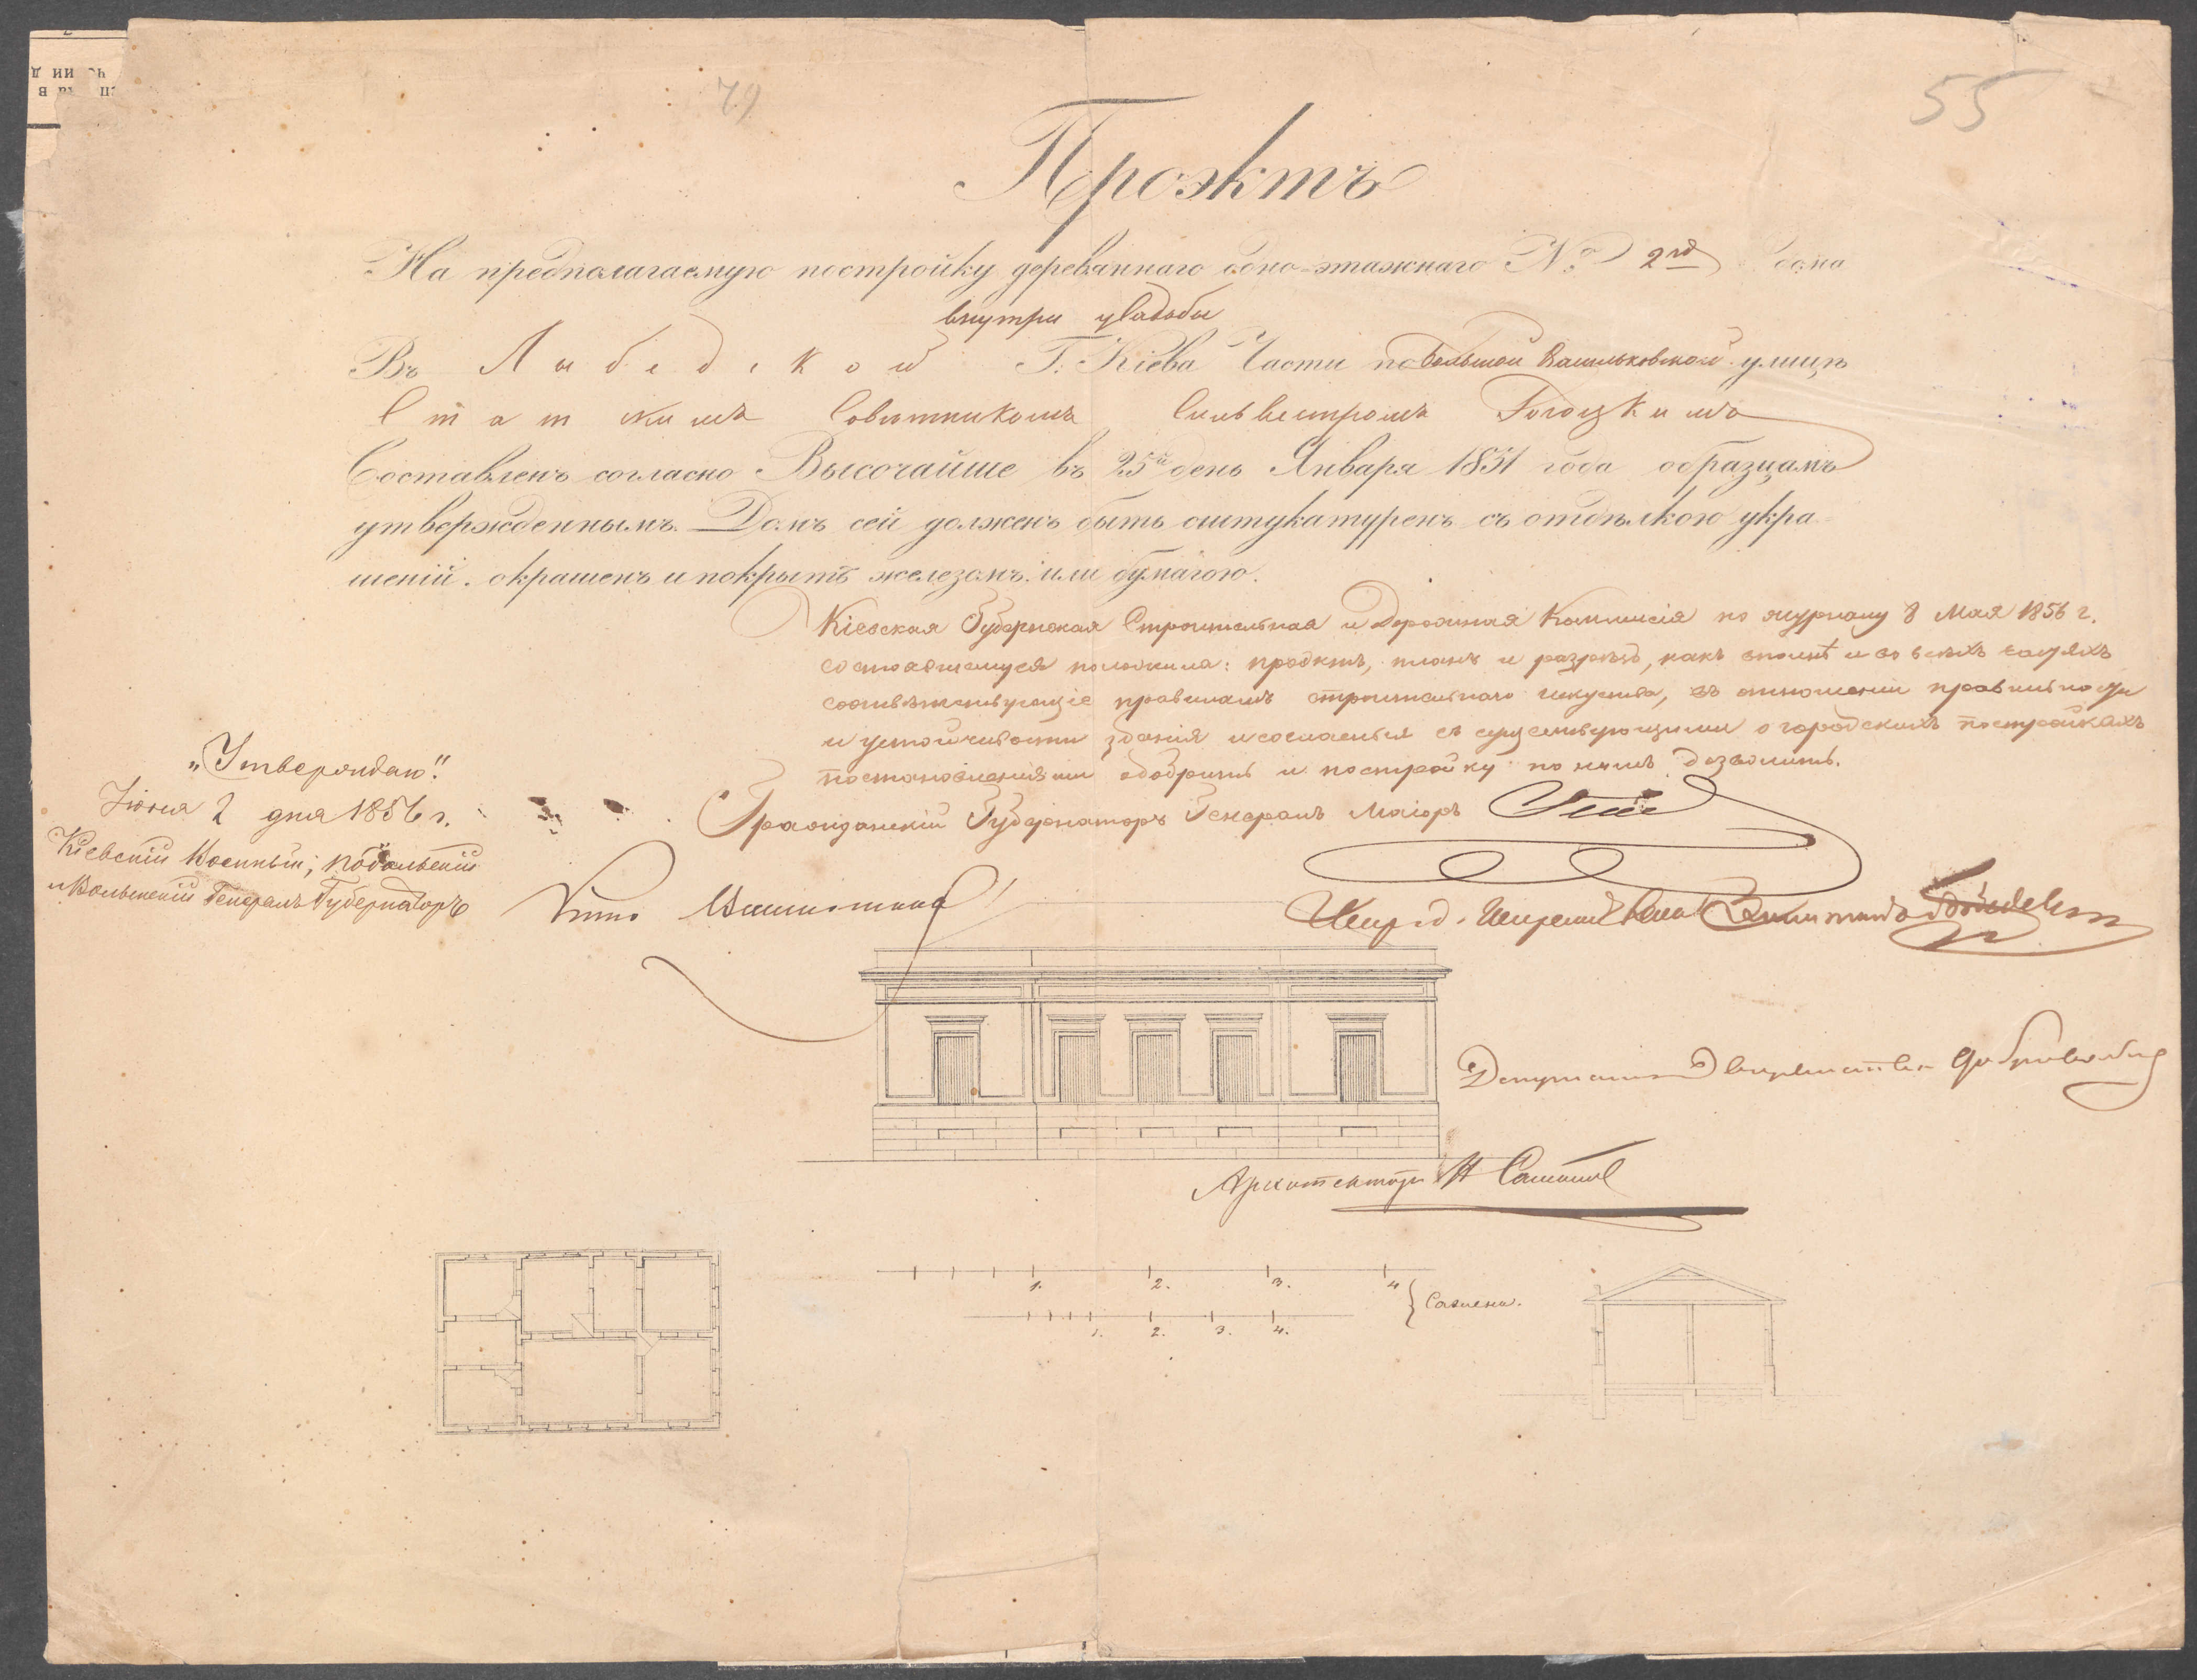 79
55
Проэктъ
На предполагаемую постройку деревяннаго одно-этажнаго № 2го дома
внутри усадьбы
Въ Лыбедской Г. Кіева Части по Большой Васильковской улицѣ
Статскимъ Совѣтникомъ Сильвестромъ Гогоцкимъ
Составленъ согласно Высочайше въ 25й день Января 1851 года образцамъ
утвержденнымъ. Домъ сей долженъ быть оштукатуренъ съ отдѣлкою укра-
шеній. окрашенъ и покрытъ железомъ или бумагою.
Кіевская Губернская Строительная и Дорожная Коммисія по журналу 8 Мая 1856 г.
состоявшемуся положила: проэктъ, планъ и разрѣзъ, какъ вполнѣ и во всѣхъ частяхъ
соотвѣтствующіе правиламъ строительнаго искуства, въ отношеніи правильности
и устойчивости зданія и согласныя съ существующими о городскихъ постройкахъ
постановленіями одобрить и постройку по нимъ дозволить.
„Утверждаю".
Іюня 2 дня 1856 г.
Кіевскій Военный, Подольскій
и Волынскій Генералъ Губернаторъ
Гражданскій Губернаторъ Генералъ Маіоръ
Депутатъ Дворянства
Архитекторъ
1. 2. 3. 4
1. 2. 3. 4.
Сажени.